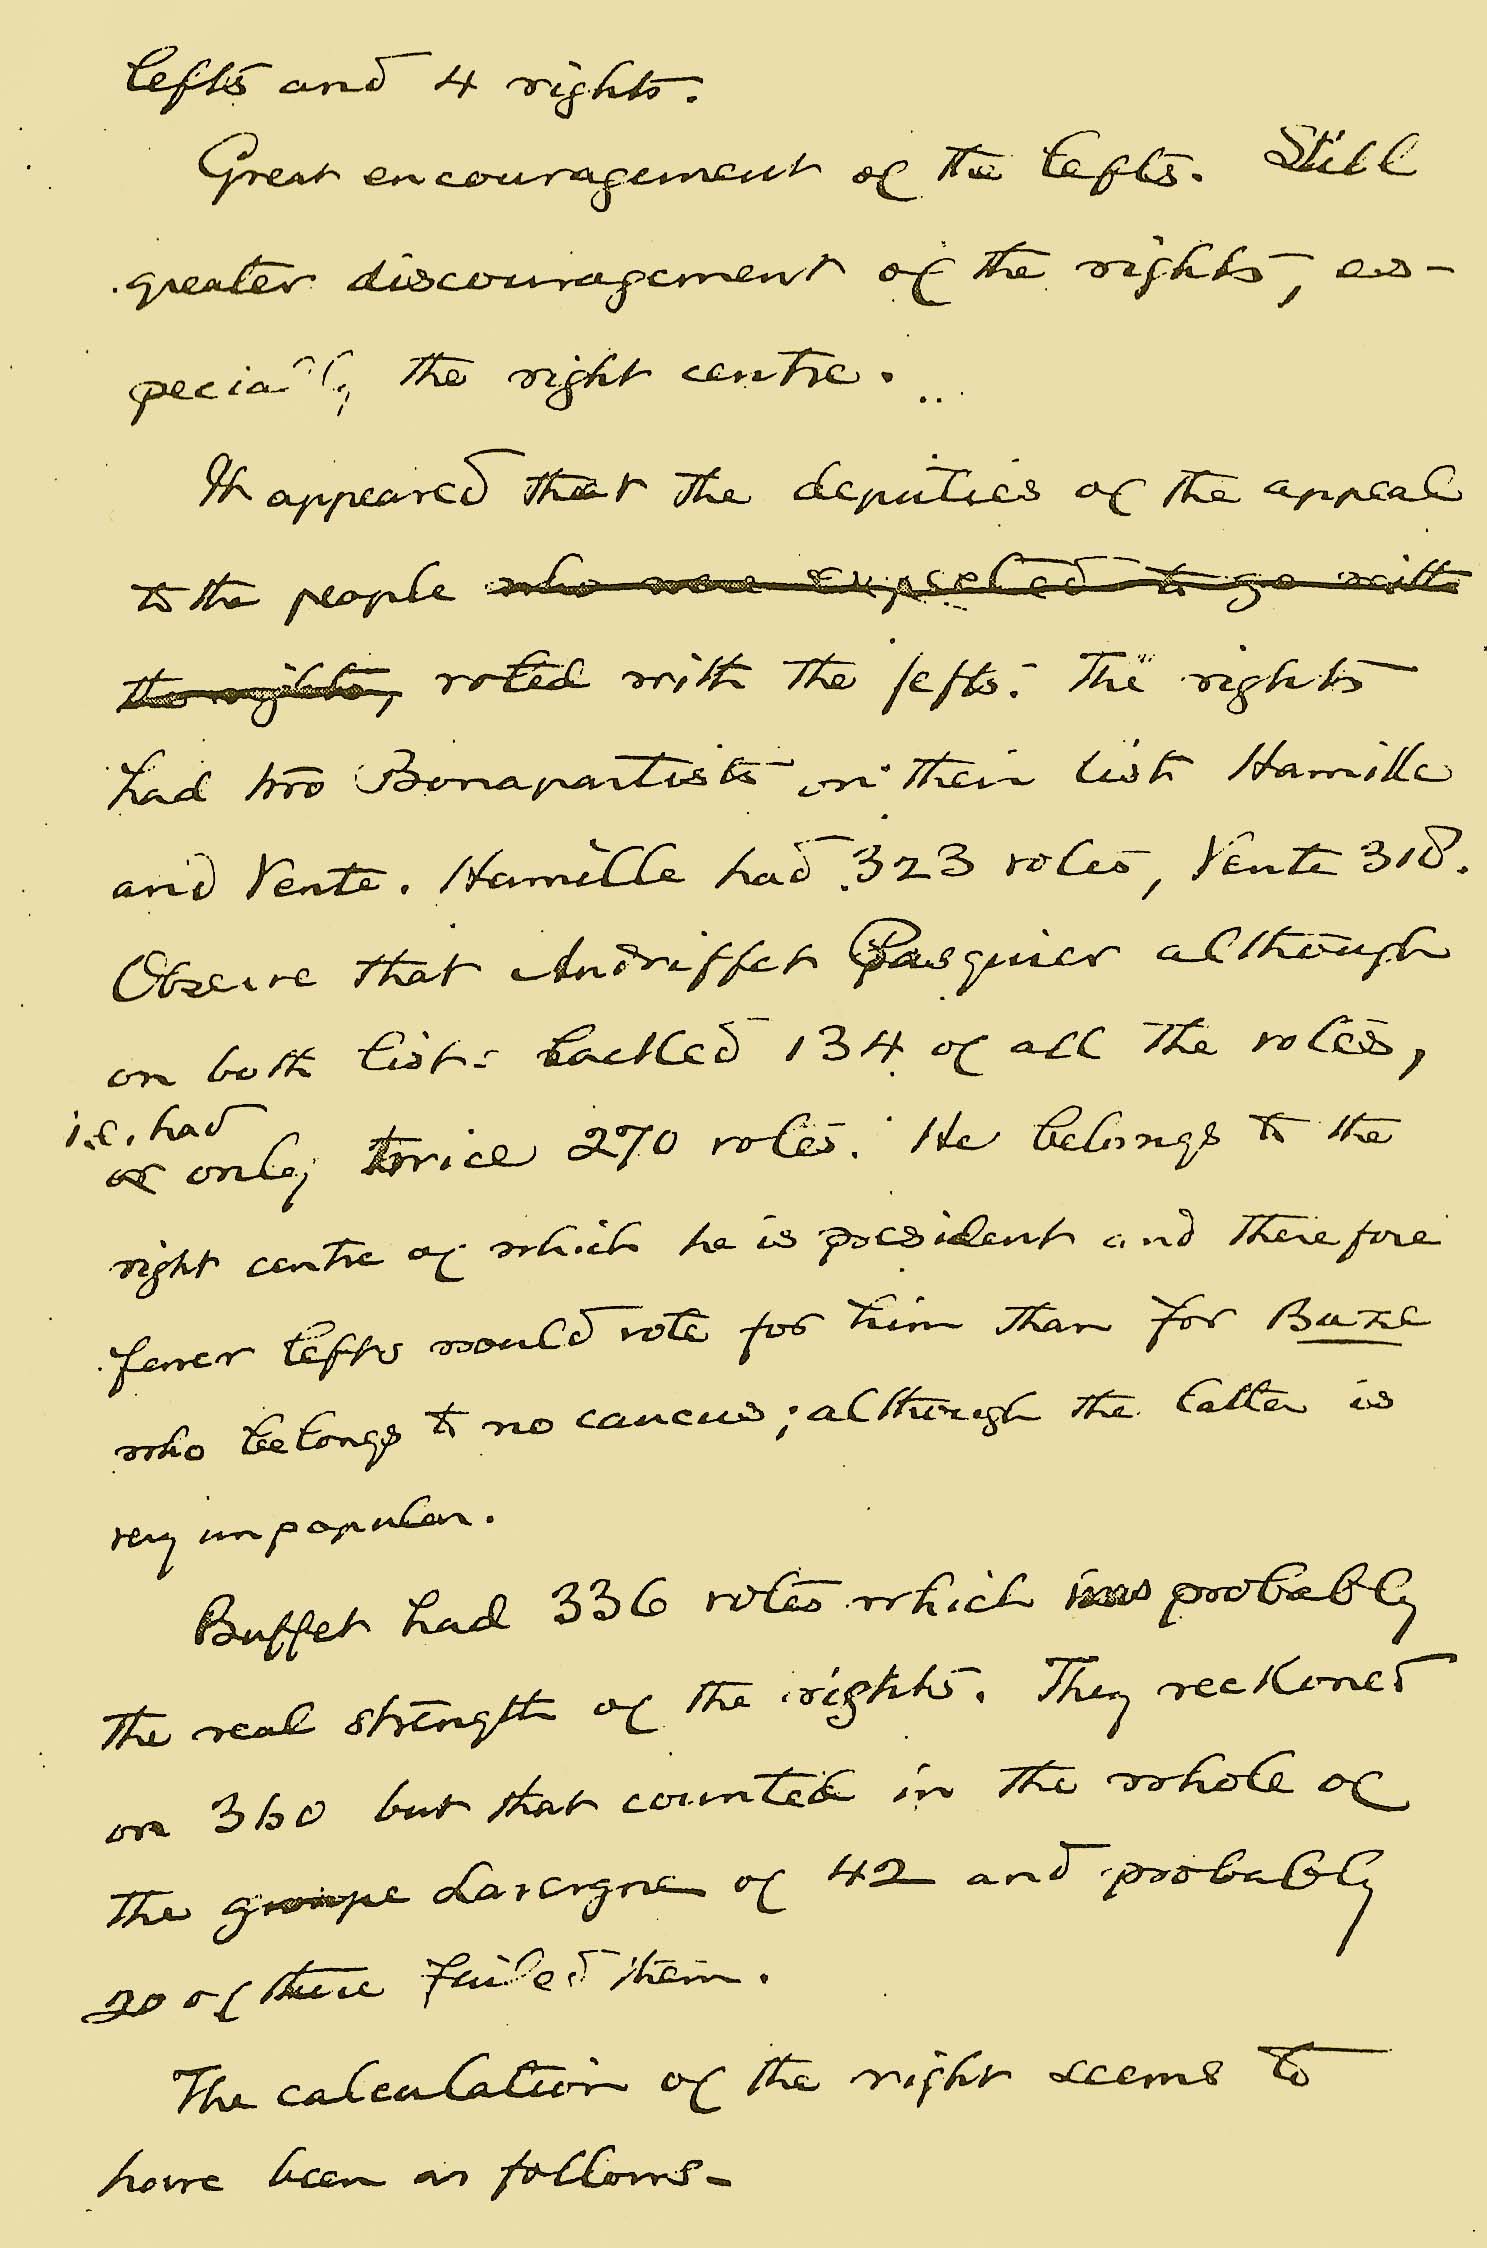 lefts and 4 rights.
Great encouragement of the lefts. Still
greater discouragement of the rights, es-
pecially the right centre.
It appeared that the deputies of the appeal
to the people who were expected to go with
the rights, voted with the lefts. The rights
had two Bonapartists on their list Hamille
and Vente. Hamille had 323 votes, Vente 318.
Observe that Andriffet Pasquier although
on both lists lacked 134 of all the votes,
i.e. had
or only twice 270 votes. He belongs to the
right centre of which he is president and therefore
fewer lefts would vote for him than for Baze
who belongs to no caucus; although the latter is
very unpopular.
Buffet had 336 votes which was probably
the real strength of the rights. They reckoned
on 360 but that counted in the whole of
the groupe Lavergne of 42 and probably
20 of these failed them.
The calculation of the right seems to
have been as follows-